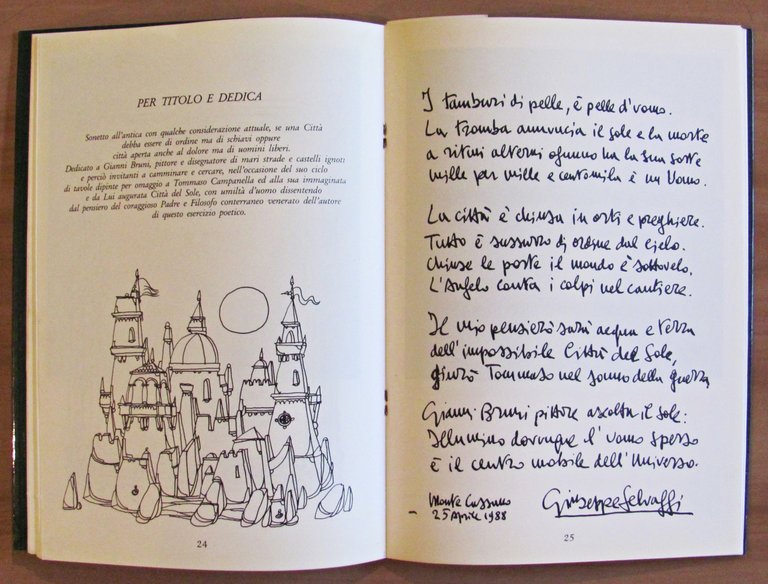 PER TITOLO E DEDICA
Sonetto all'antica con qualche considerazione attuale, se una Città
debba essere di ordine ma di schiavi oppure
città aperta anche al dolore ma di uomini liberi.
Dedicato a Gianni Bruni, pittore e disegnatore di mari strade e castelli ignoti
e perciò invitanti a camminare e cercare, nell'occasione del suo ciclo
di tavole dipinte per omaggio a Tommaso Campanella ed alla sua immaginata
e da Lui augurata Città del Sole, con umiltà d'uomo dissentendo
dal pensiero del coraggioso Padre e Filosofo conterraneo venerato dell'autore
di questo esercizio poetico.
24
I tamburi di pelle, è pelle d'uomo.
La tromba annuncia il sole e la morte
a ritmi alterni ognuno ha la sua sorte
mille per mille e centomila è un Uomo.
La città è chiusa in orti e preghiere.
Tutto è sussurro di ordine dal cielo.
Chiuse le porte il mondo è sottovelo.
L'Angelo conta i colpi nel cantiere.
Il mio pensiero sarà acqua e terra
dell'impossibile Città del Sole,
giurò Tommaso nel sonno della guerra
Gianni Bruni pittore ascolta il sole:
Illumino dovunque l'uomo sperso
è il centro mobile dell'Universo.
Monte Cassino
25 Aprile 1988
Giuseppe Selvaggi
25